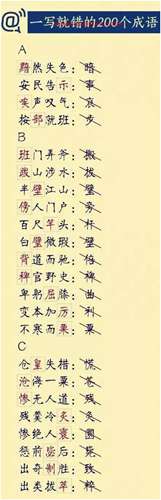 @ 一写就错的200个成语
A
黯然失色：暗
安民告示：事
唉声叹气：哀
按部就班：步
B
班门弄斧：搬
跋山涉水：拔
半壁江山：璧
傍人门户：旁
百尺竿头：杆
白璧微瑕：壁
背道而驰：
稗官野史：稗
卑躬屈膝：曲
变本加厉：利
不寒而栗：粟
C
仓皇失措：慌
沧海一粟：苍
惨无人道：残
残羹冷炙：灸
惨绝人寰：圜
惩前毖后：
出奇制胜：致
出类拔萃：粹